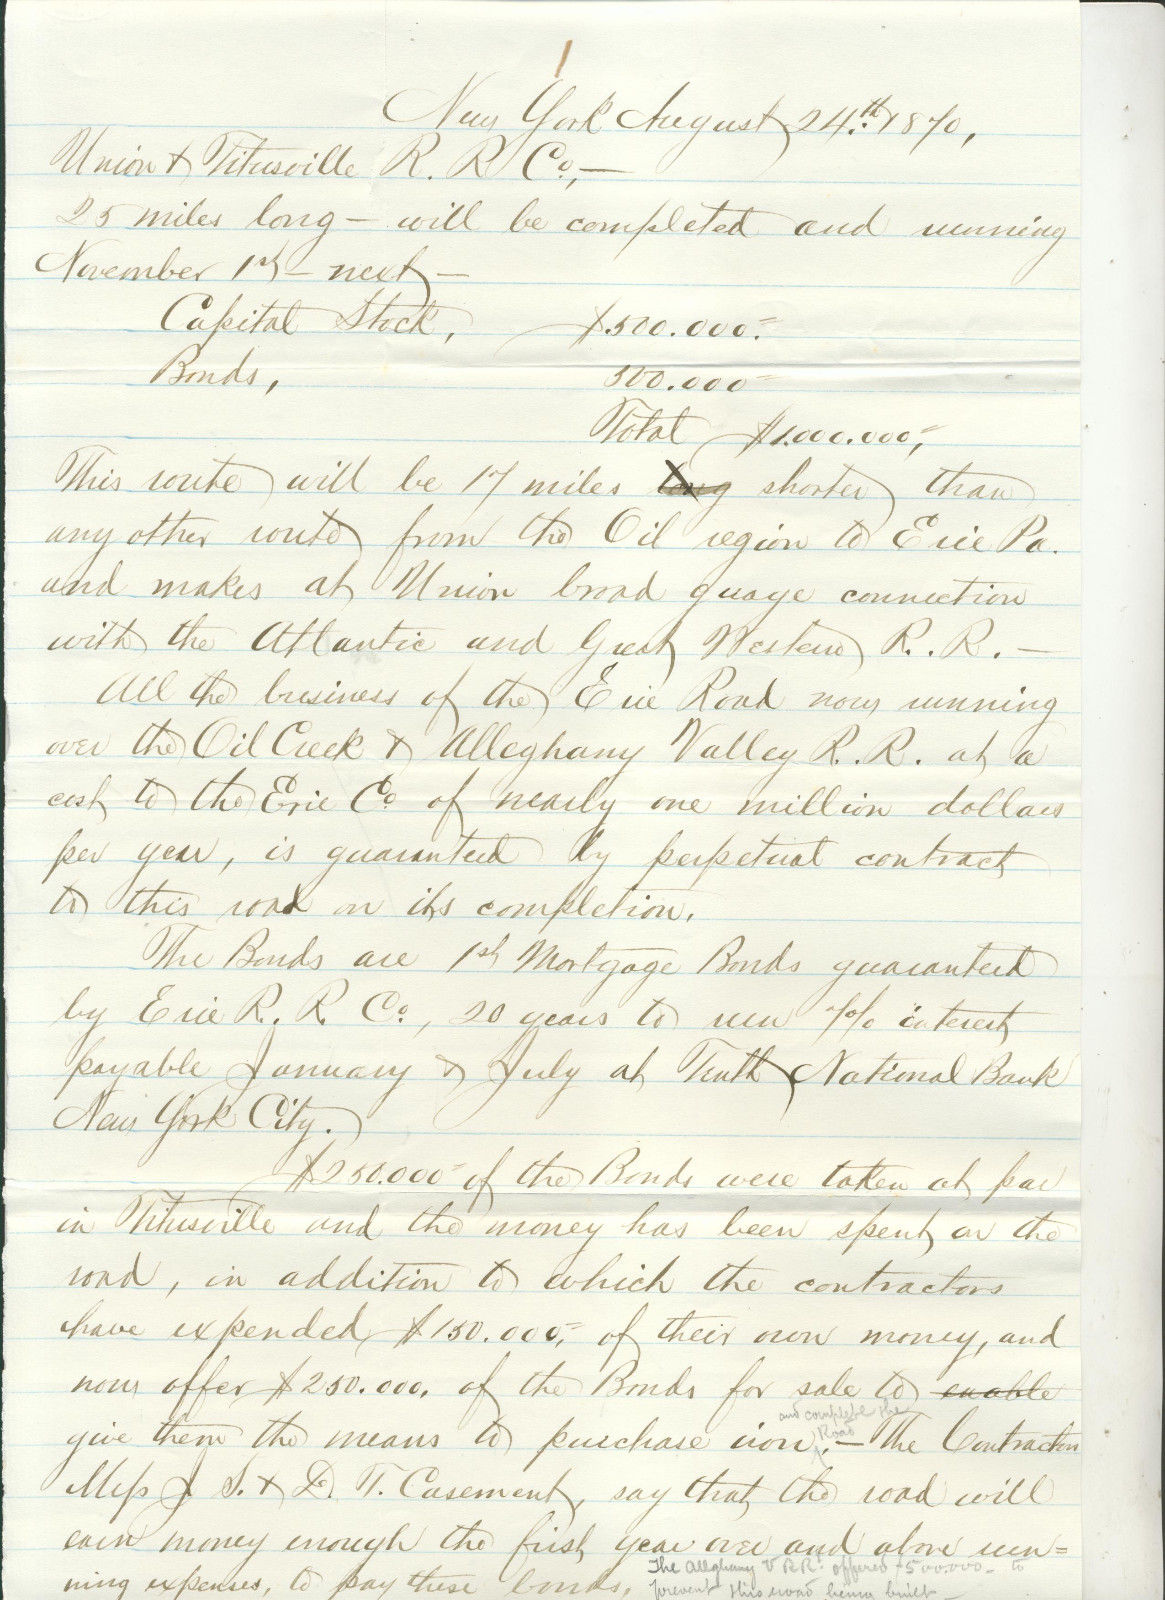 New York August 24th 1870,
Union & Titusville R. R Co,—
25 miles long — will be completed and running
November 1st — next —
Capital Stock, $500.000.=
Bonds, 500.000=
Total $1.000.000,=
This route will be 17 miles long shorter than
any other route from the Oil region to Erie Pa.
and makes at Union broad guage connection
with the Atlantic and Great Western R. R. —
All the business of the Erie Road now running
over the Oil Creek & Alleghany Valley R. R. at a
cost to the Erie Co of nearly one million dollars
per year, is guaranteed by perpetual contract
to this road on its completion.
The Bonds are 1st Mortgage Bonds guaranteed
by Erie R. R. Co, 20 years to run 7% interest
payable January & July at Tenth National Bank
New York City.
$250.000= of the Bonds were taken at par
in Titusville and the money has been spent on the
road, in addition to which the contractors
have expended $150.000,= of their own money, and
now offer $250.000. of the Bonds for sale to enable
and complete the
Road
give them the means to purchase iron. — The Contractors
Mess J. S. & D. T. Casement, say that the road will
earn money enough the first year over and above run=
ning expenses, to pay these bonds.
The Alleghany V R R. offered $500.000- to
prevent this road being built —